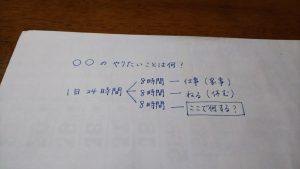 ○○ の やりたいことは何?
8時間 — 仕事(家事)
1日 24時間 8時間 — ねる(休む)
8時間 — ここで何する?